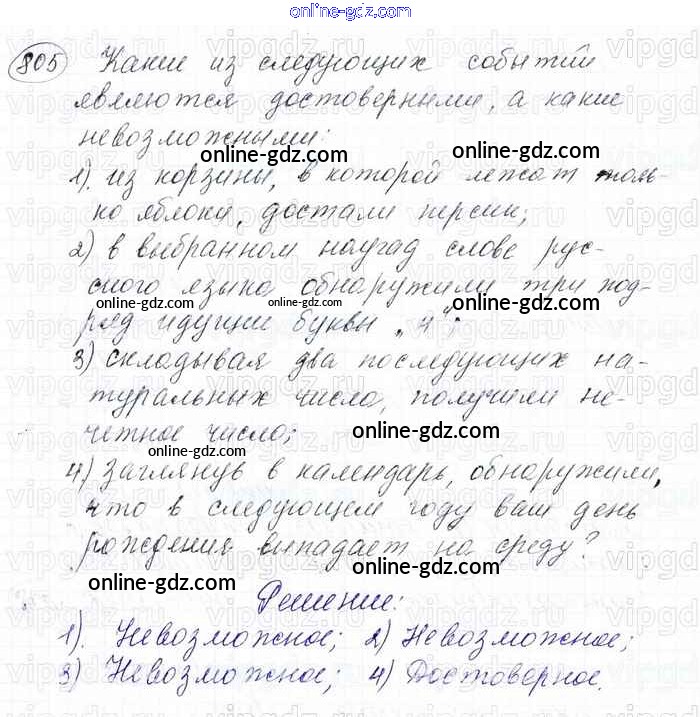 online-gdz.com
805 Какие из следующих событий
являются достоверными, а какие
невозможными:
online-gdz.com online-gdz.com
1). из корзины, в которой лежат толь-
ко яблоки, достали персик;
online-gdz.com
2) в выбранном наугад слове рус-
ского языка обнаружили три под-
online-gdz.com online-gdz.com online-gdz.com
ряд идущии буквы „ч";
3) складывая два последующих на-
туральных числа, получили не-
четное число;
online-gdz.com
4) Заглянув в календарь, обнаружили,
что в следующем году ваш день
рождения выпадает на среду?
online-gdz.com online-gdz.com
Решение:
1). Невозможное; 2) Невозможное;
3) Невозможное; 4) Достоверное.